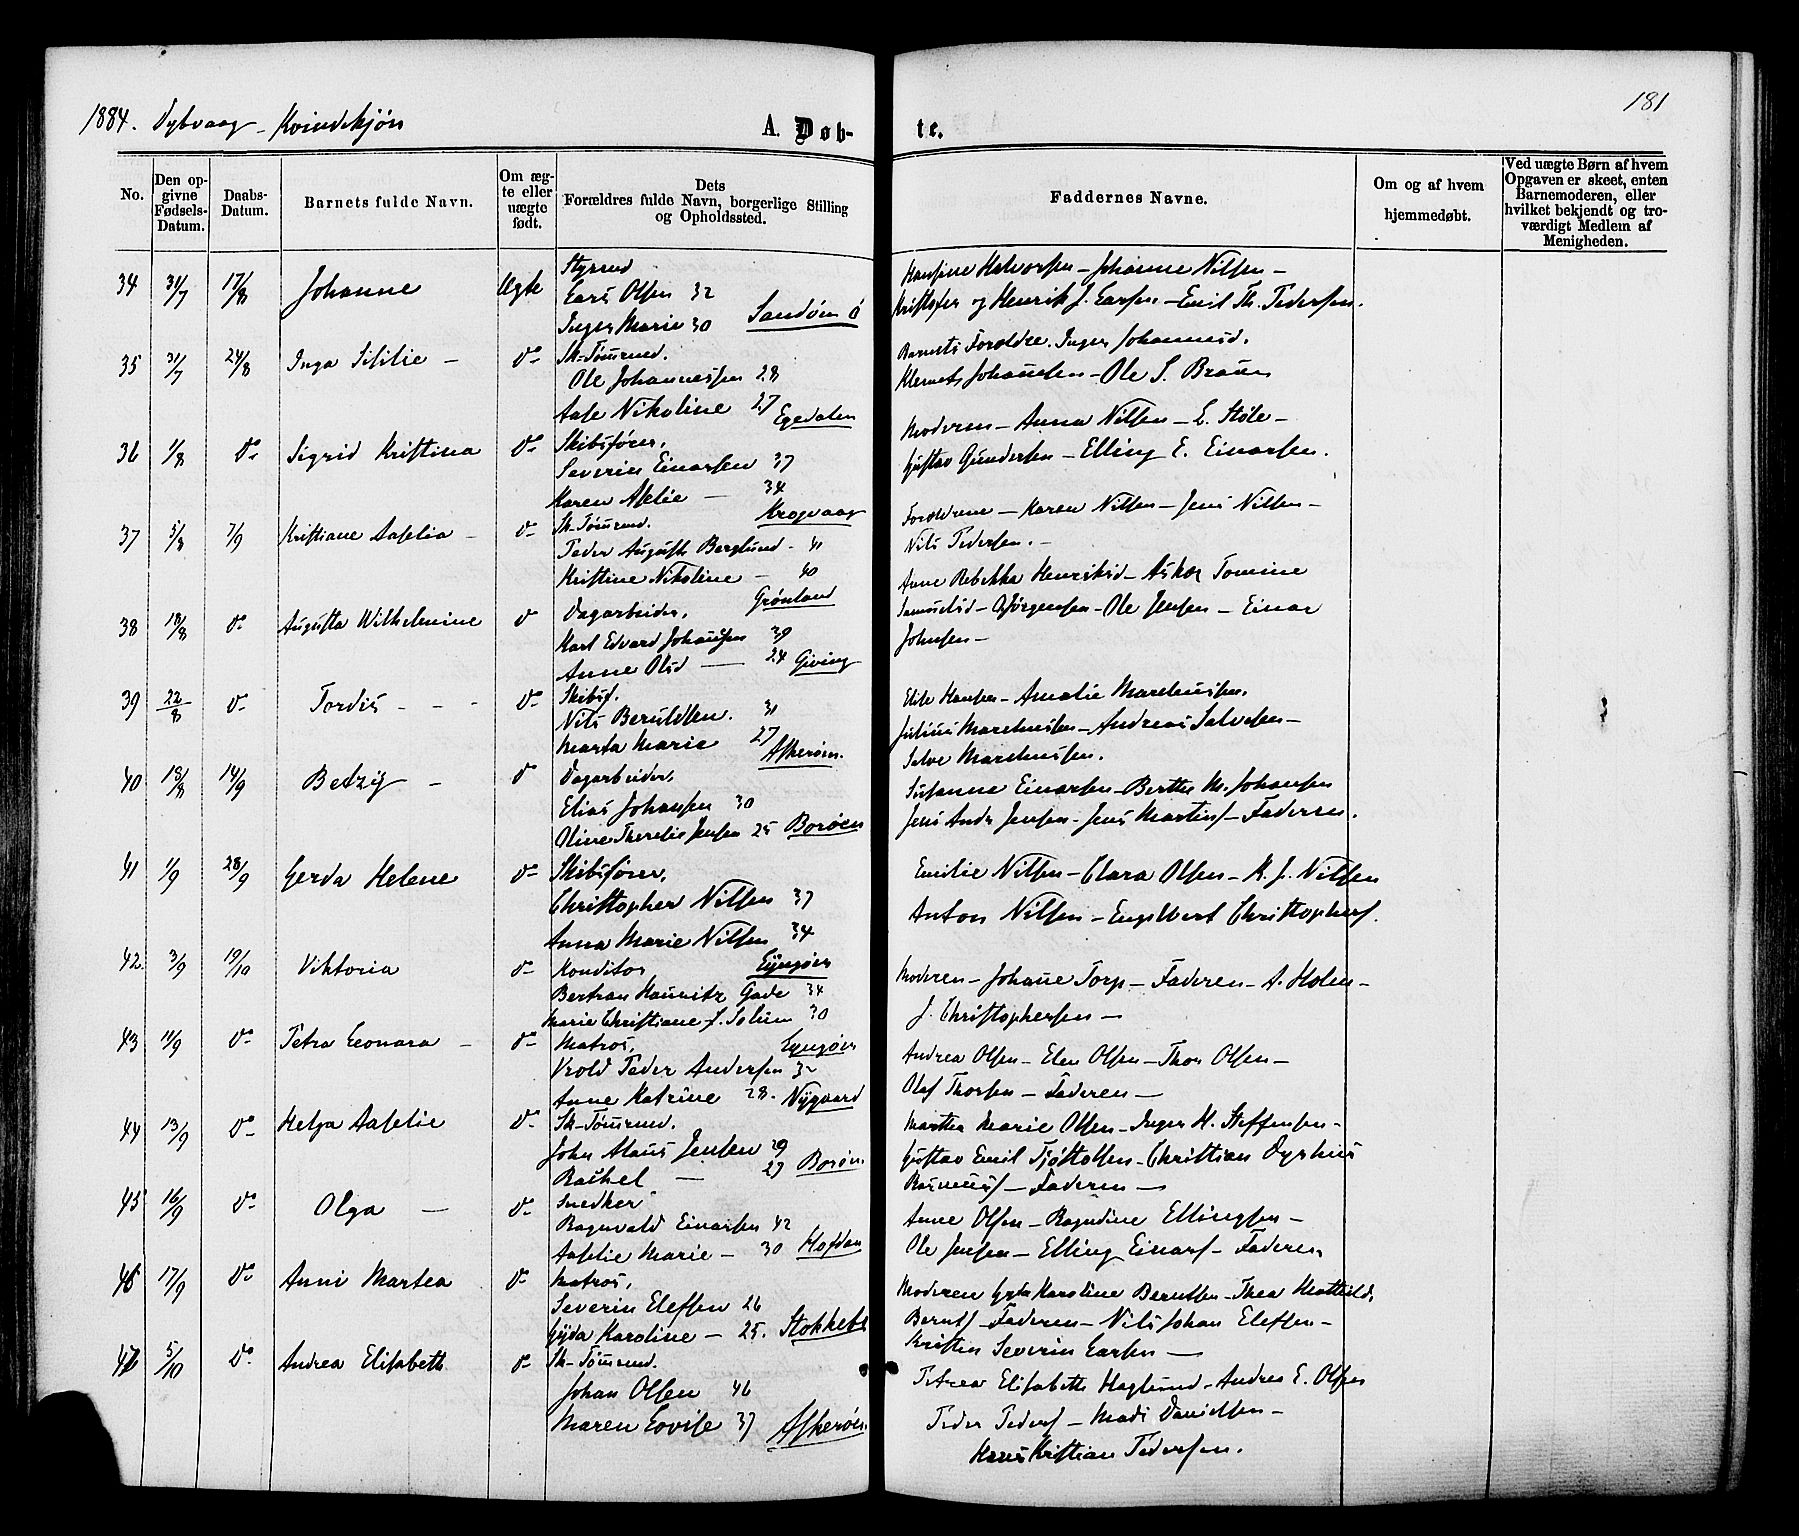 1884. Dybvaag - Kvindekjøn
181
A. Døb-
te.
No.
Den opgivne Fødsels-Datum.
Daabs-Datum.
Barnets fulde Navn.
Om ægte eller uægte født.
Dets Forældres fulde Navn, borgerlige Stilling og Opholdssted.
Faddernes Navne.
Om og af hvem hjemmedøbt.
Ved uægte Børn af hvem Opgaven er skeet, enten Barnemoderen, eller hvilket bekjendt og troværdigt Medlem af Menigheden.
34 31/7 17/8 Johanne Ægte
Styrmd
Lars Olsen 32
Inger Marie 30 Sandøen
Hansine Halvorsen - Johanne Nilsen -
Kristofer og Henrik J. Larsen - Emil Th. Pedersen.
35 31/7 24/8 Inga Sesilie - Do
Sk-Tømmrmd.
Ole Johannessen 28
Aase Nikoline 27 Egedalen
Barnets Forældre. Inger Johannesd.
Klemet Johansen - Ole S. Braun
36 1/8 Do Sigrid Kristina Do
Skibsfører,
Severin Einarsen 37
Karen Aselie - 34
Krogvaag
Moderen - Anna Nilsen - L. Støle -
Gustav Gundersen - Elling E. Einarsen.
37 5/8 7/9 Kristiane Aaselia - Do
Sk-Tømmrmd.
Peder August Berglund - 41
Kristine Nikoline - 40
Grønland
Forældrene - Karen Nilsen - Jens Nilsen -
Nils Pedersen. -
38 18/8 Do Augusta Wilhelmine Do
Dagarbeider,
Karl Edvard Johansen 39
Anne Olsd - 24 Giving
Anne Rebekka Henriksd - Tomine
Samuelsd - Jørgensen - Ole Jensen - Einar
Johnsen -
39 22/8 Do Tordis - - - Do
Skibsf.
Nils Beruldsen. 31
Marta Marie 27
Askerøen.
Elise Hansen - Amalie Marcheussen.
Julius Marcheussen - Andreas Salvesen -
Salve Marcheussen.
40 13/8 14/9 Betzy - Do
Dagarbeider,
Elias Johansen 30
Oline Therelie Jensen 25 Borøen
Susanna Einarsen - Berthe M. Johansen
Jens Andr Jensen - Jens Martins - Faderen.
41 1/9 28/9 Gerda Helene Do
Skibsfører,
Christopher Nilsen 37
Anna Marie Nilsen 34
Lyngøer
Emilie Nilsen - Clara Olsen - K. J. Nilsen
Anton Nilsen - Engelbert Christophers.
42. 3/9 19/10 Viktoria Do
Konditor
Bertran Gade 34
Marie Christiane f. Solum 30
Lyngøer
Moderen - Johanne Torp - Faderen - A. Holm -
J. Christophersen -
43 11/9 Do Petra Leonara - Do
Matros,
Vrold Peder Andersen 32
Anne Katrine 28. Nygaard
Andrea Olsen - Elen Olsen - Thor Olsen -
Olaf Thorsen - Faderen -
44 13/9 Do Helga Aaselie Do
Sk-Tømmrmd.
John Alaus Jensen 29
Rachel - 29 Borøen
Marthea Marie Olsen - Inger H. Steffensen -
Gustav Emil Tjøstolsen - Christian Dyrhus
Rasmus - Faderen -
45 16/9 Do Olga - Do
Snedker
Ragnvald Einarsen 42
Aaselie Marie - 30 Hofdan
Anne Olsen - Ragndine Ellingsen -
Ole Jensen - Elling Einars - Faderen
46 17/9 Do Anni Martea Do
Matros,
Severin Elefsen 26
Gyda Karoline - 25. Stokkebo
Moderen Gyda Karoline Berntsen - Thea Mathilde
Bernts - Faderen - Nils Johan Elefsen -
Kristen Severin Larsen -
47 5/10 Do Andrea Elisabeth Do
Sk-Tømmrmd.
Johan Olsen 46
Maren Lovise 37 Askerøen
Petrea Elisabeth Haglund - Andrea E. Olsen
Peder Peders - Mads Danielsen -
Hans Kristian Pedersen.